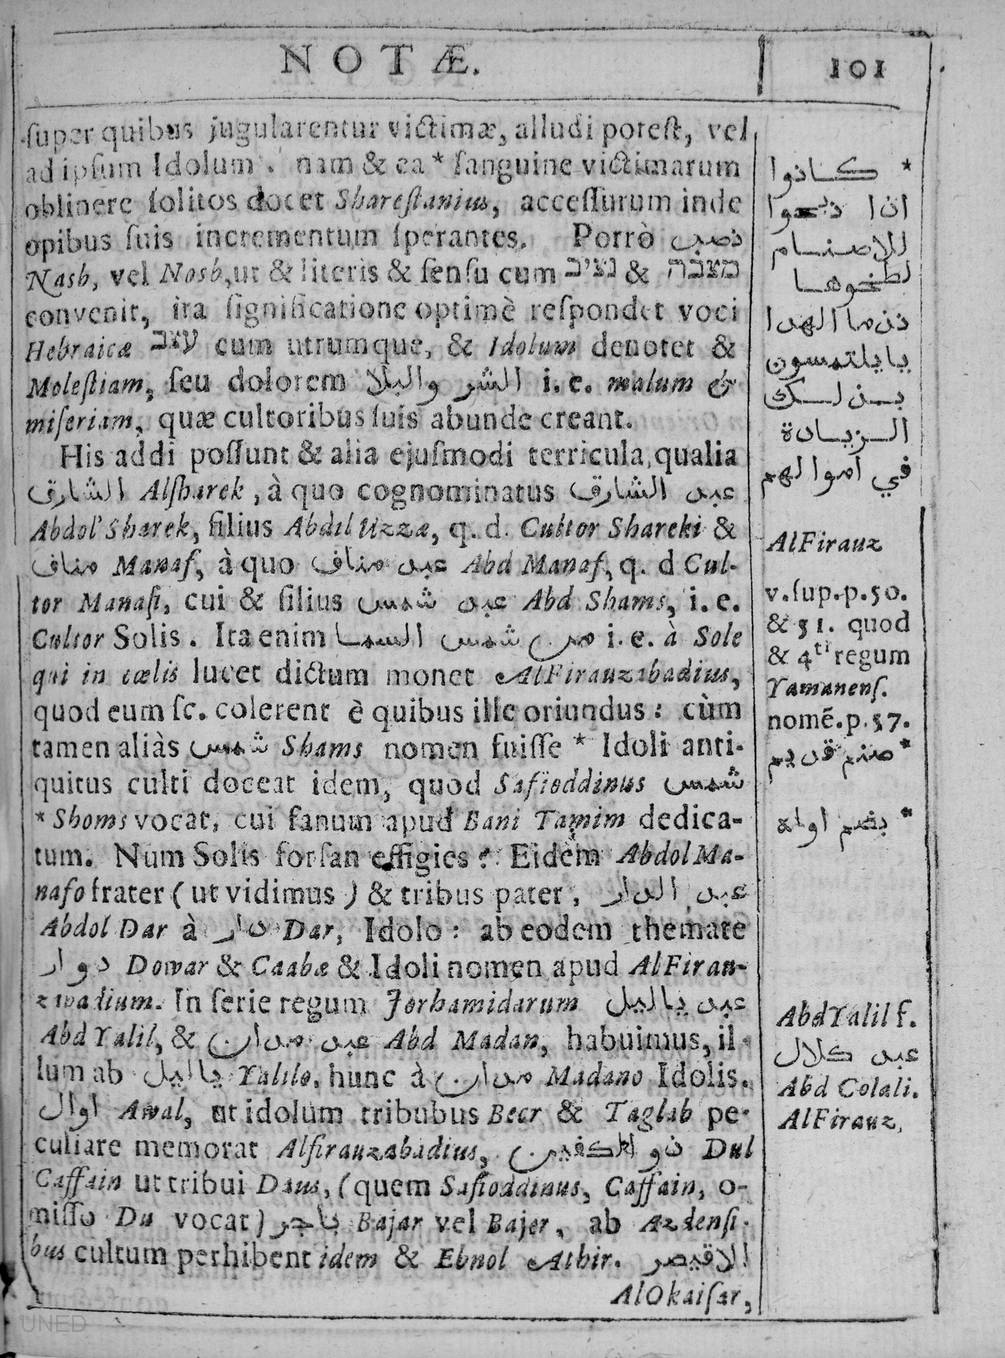 NOTÆ.
101
super quibus jugularentur victimæ, alludi potest, vel
ad ipsum Idolum. nam & ea * sanguine victimarum
oblinere solitos docet Sharestanius, accessurum inde
opibus suis incrementum sperantes. Porrò نصب
Nasb, vel Nosb, ut & literis & sensu cum נציב & מצבה
convenit, ita significatione optimè respondet voci
Hebraicæ עצב cum utrumque, & Idolum denotet &
Molestiam, seu dolorem الشر والبلا i. e. malum &
miseriam, quæ cultoribus suis abunde creant.
His addi possunt & alia ejusmodi terricula, qualia
الشارق Alsharek, à quo cognominatus عبد الشارق
Abdol Sharek, filius Abdil Uzzæ, q. d. Cultor Shareki &
مناف Manaf, à quo عبد مناف Abd Manaf, q. d Cul-
tor Manafi, cui & filius عبد شمس Abd Shams, i. e.
Cultor Solis. Ita enim من شمس السما i. e. à Sole
qui in cœlis lucet dictum monet AlFirauzabadius,
quod eum sc. colerent è quibus ille oriundus: cùm
tamen aliàs شمس Shams nomen fuisse * Idoli anti-
quitus culti doceat idem, quod Safieddinus شمس
* Shoms vocat, cui fanum apud Bani Tamim dedica-
tum. Num Solis forsan effigies? Eidem Abdol Ma-
nafo frater (ut vidimus) & tribus pater, عبد الدار
Abdol Dar à دار Dar, Idolo: ab eodem themate
دوار Dowar & Caabæ & Idoli nomen apud AlFirau-
zabadium. In serie regum Jorhamidarum عبد ياليل
Abd Yalil, & عبد مدان Abd Madan, habuimus, il-
lum ab ياليل Yalilo, hunc à مدان Madano Idolis.
اوال Awal, ut idolum tribubus Becr & Taglab pe-
culiare memorat Alfirauzabadius, ذو الكفين Dul
Caffain ut tribui Daus, (quem Safioddinus, Caffain, o-
misso Du vocat) باجر Bajar vel Bajer, ab Azdensi-
bus cultum perhibent idem & Ebnol Athir. الاقيصر
AlOkaisar,
* كانوا
اذا ذبحوا
للاصنام
لطخوها
بدماالهدا
يا يلتمسون
بذلك
الزيادة
في اموالهم
AlFirauz
v. sup. p. 50.
& 51. quod
& 4ti regum
Yamanens.
nomē. p. 57.
* صنم قديم
* بضم اوله
AbdYalil f.
عبد كلال
Abd Colali.
AlFirauz,
UNED